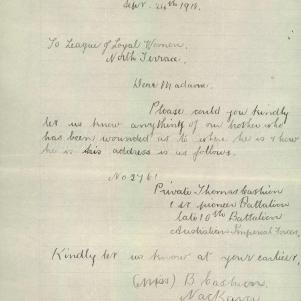 Sept. 24th 1916.
To League of Loyal Women,
North Terrace.
Dear Madame.
Please could you kindly
let us know anything of our brother who
has been wounded as to where he is & how
he is this address is as follows.
No 2761
Private Thomas Cashion
1st Pioneer Battalion
late 10th Battalion
Australian Imperial Forces.
Kindly let us know at your earliest,
(Miss) B Cashion.